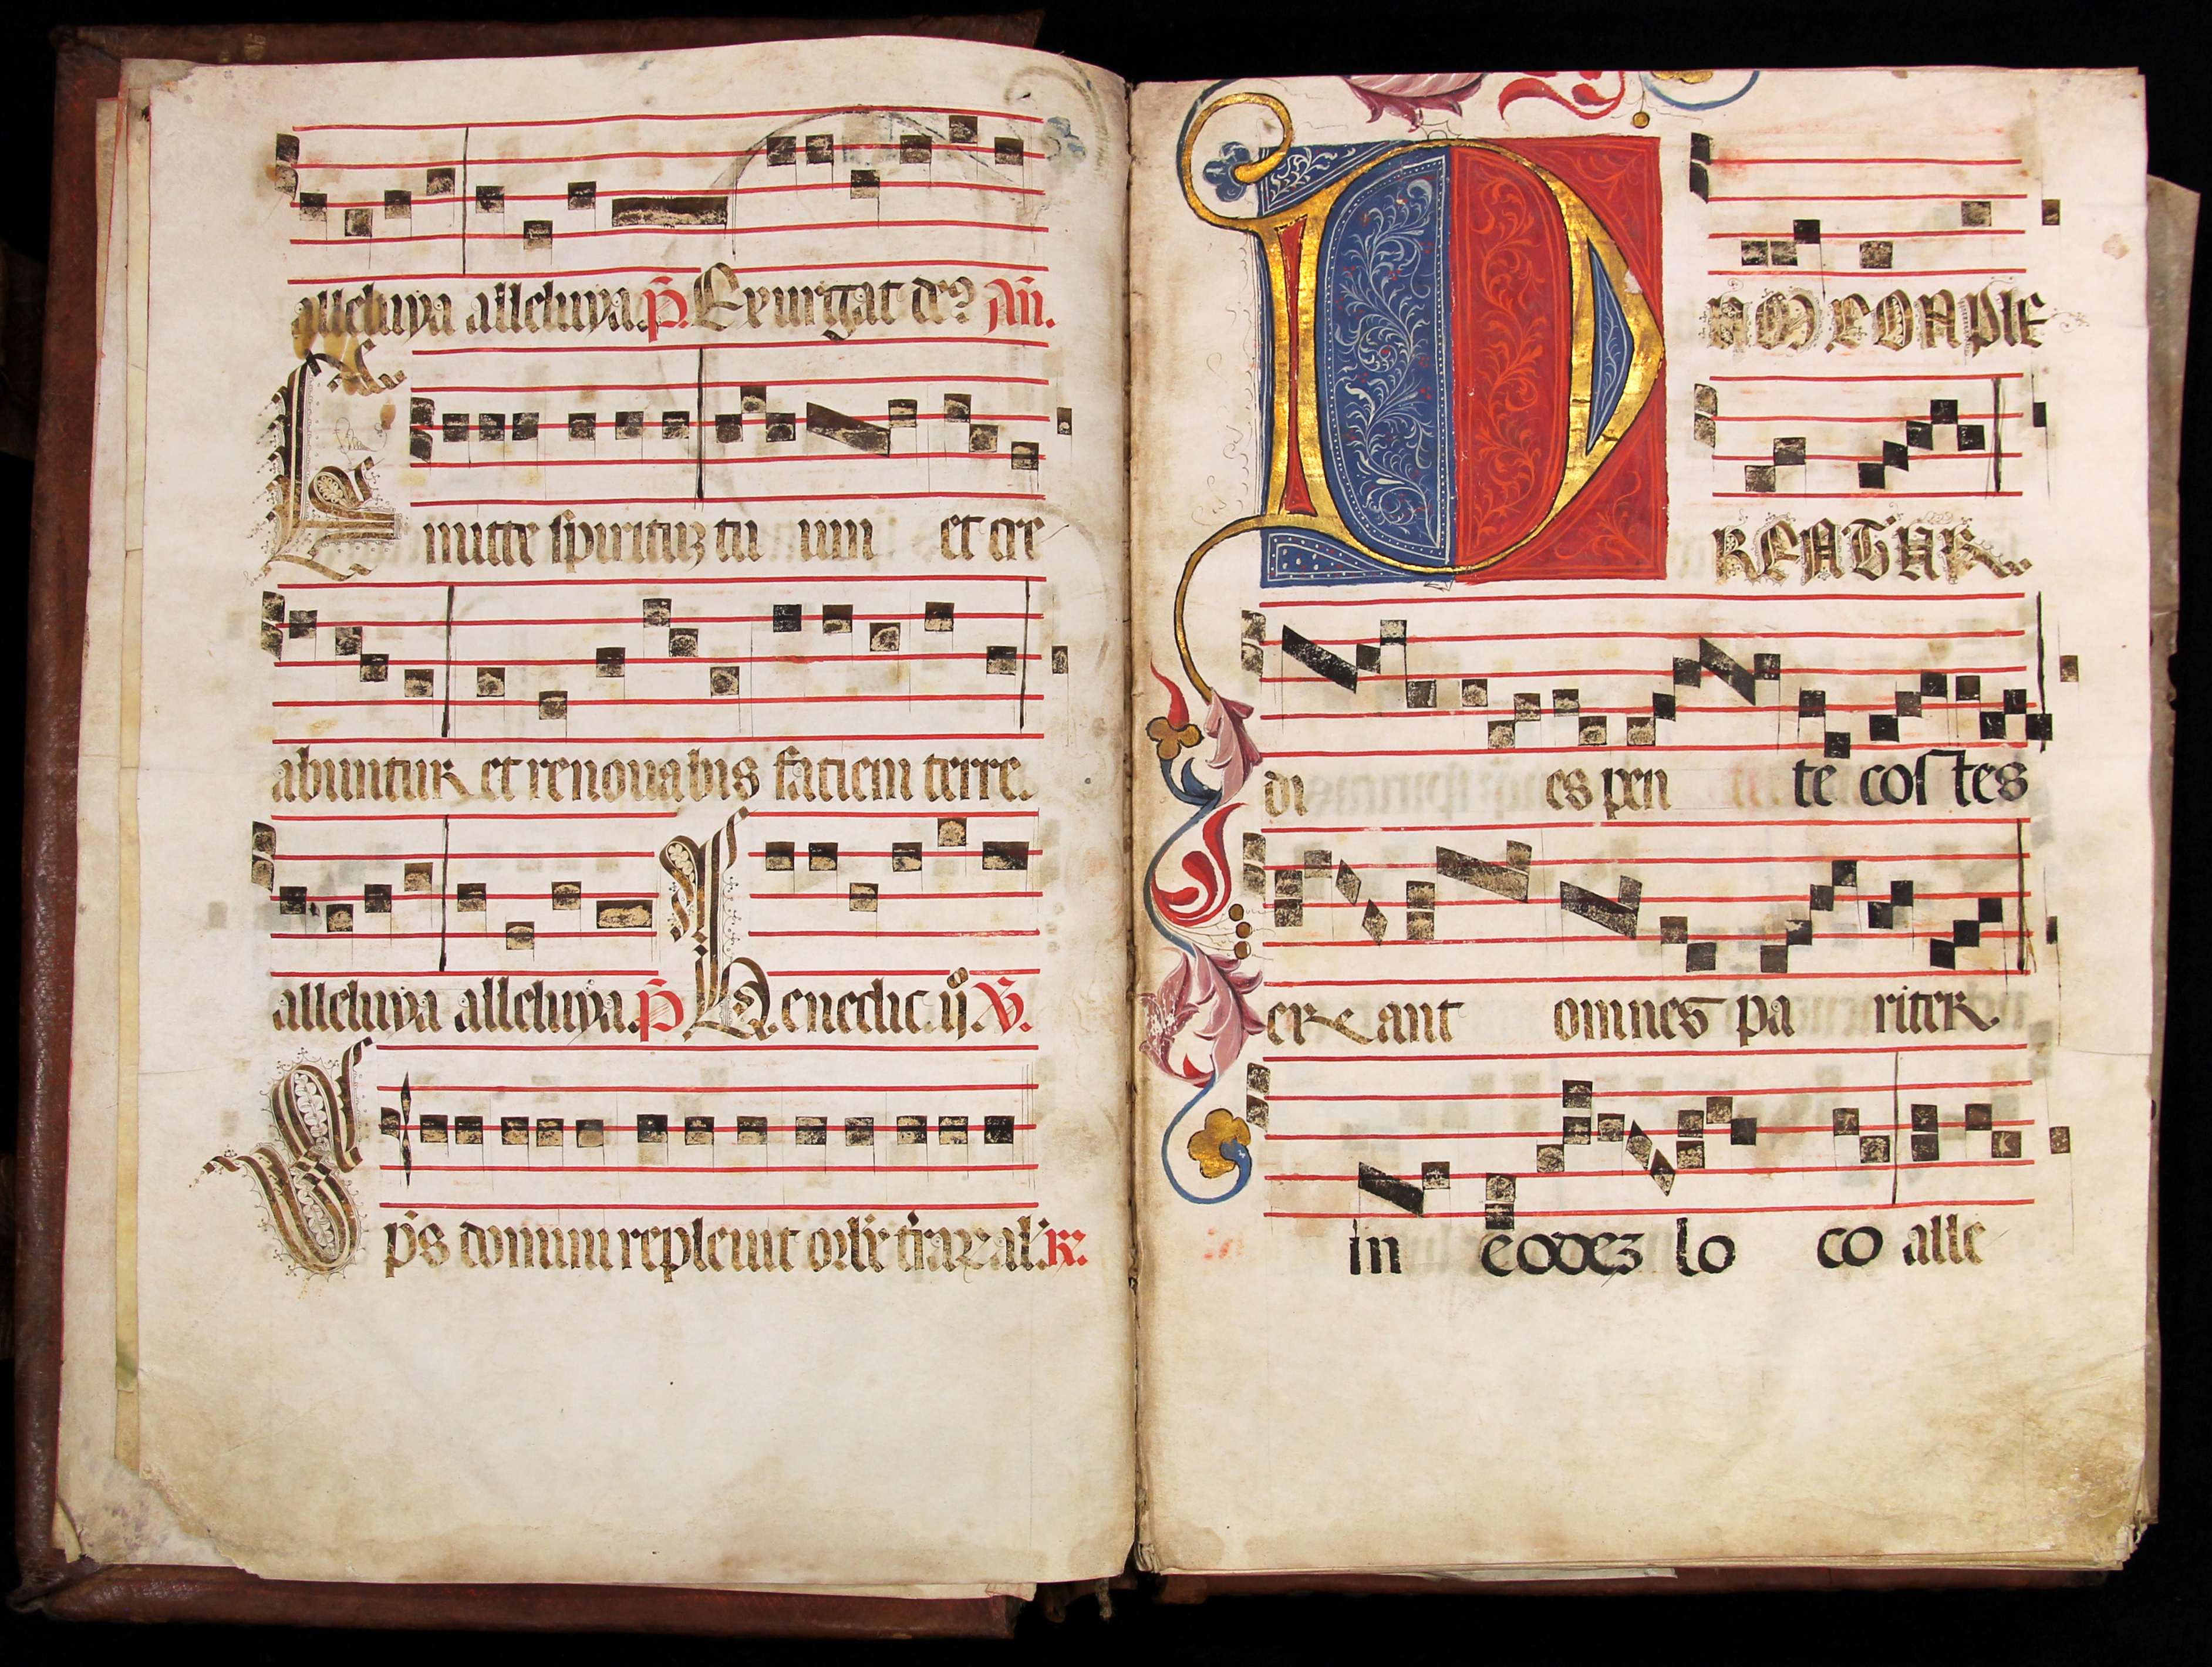 alleluya alleluya. p̄. Exurgat de⁹ Añ.
Emitte spirituʒ tu um et cre
abuntur et renouabis faciem terre.
alleluya alleluya. p̄ Benedic. ij. V̄.
Sp̄s domini repleuit orbē t̄raꝝ al'. R̄.
DUM COMPLE
RENTUR
di es pen te cos tes
erant omnes pa riter
in eodeʒ lo co alle